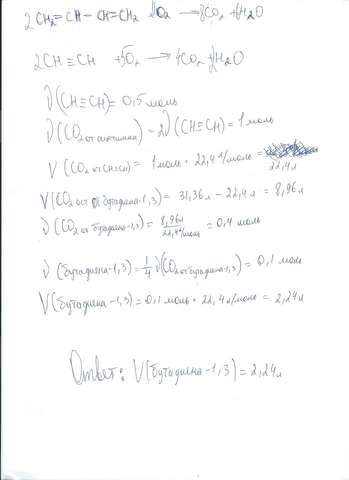 2CH₂=CH-CH=CH₂ 11O₂ → 8CO₂ + 6H₂O
2CH≡CH + 5O₂ → 4CO₂ + 2H₂O
ν(CH≡CH) = 0,5 моль
ν(CO₂ от ацетилена) = 2ν(CH≡CH) = 1 моль
V(CO₂ от CH≡CH) = 1 моль · 22,4 л/моль =
22,4 л
V(CO₂ от бутадиена-1,3) = 31,36 л - 22,4 л = 8,96 л
ν(CO₂ от бутадиена-1,3) = 8,96л / 22,4 л/моль = 0,4 моль
ν(бутадиена-1,3) = 1/4 ν(CO₂ от бутадиена-1,3) = 0,1 моль
V(бутадиена-1,3) = 0,1 моль · 22,4 л/моль = 2,24 л
Ответ: V(бутадиена-1,3) = 2,24 л